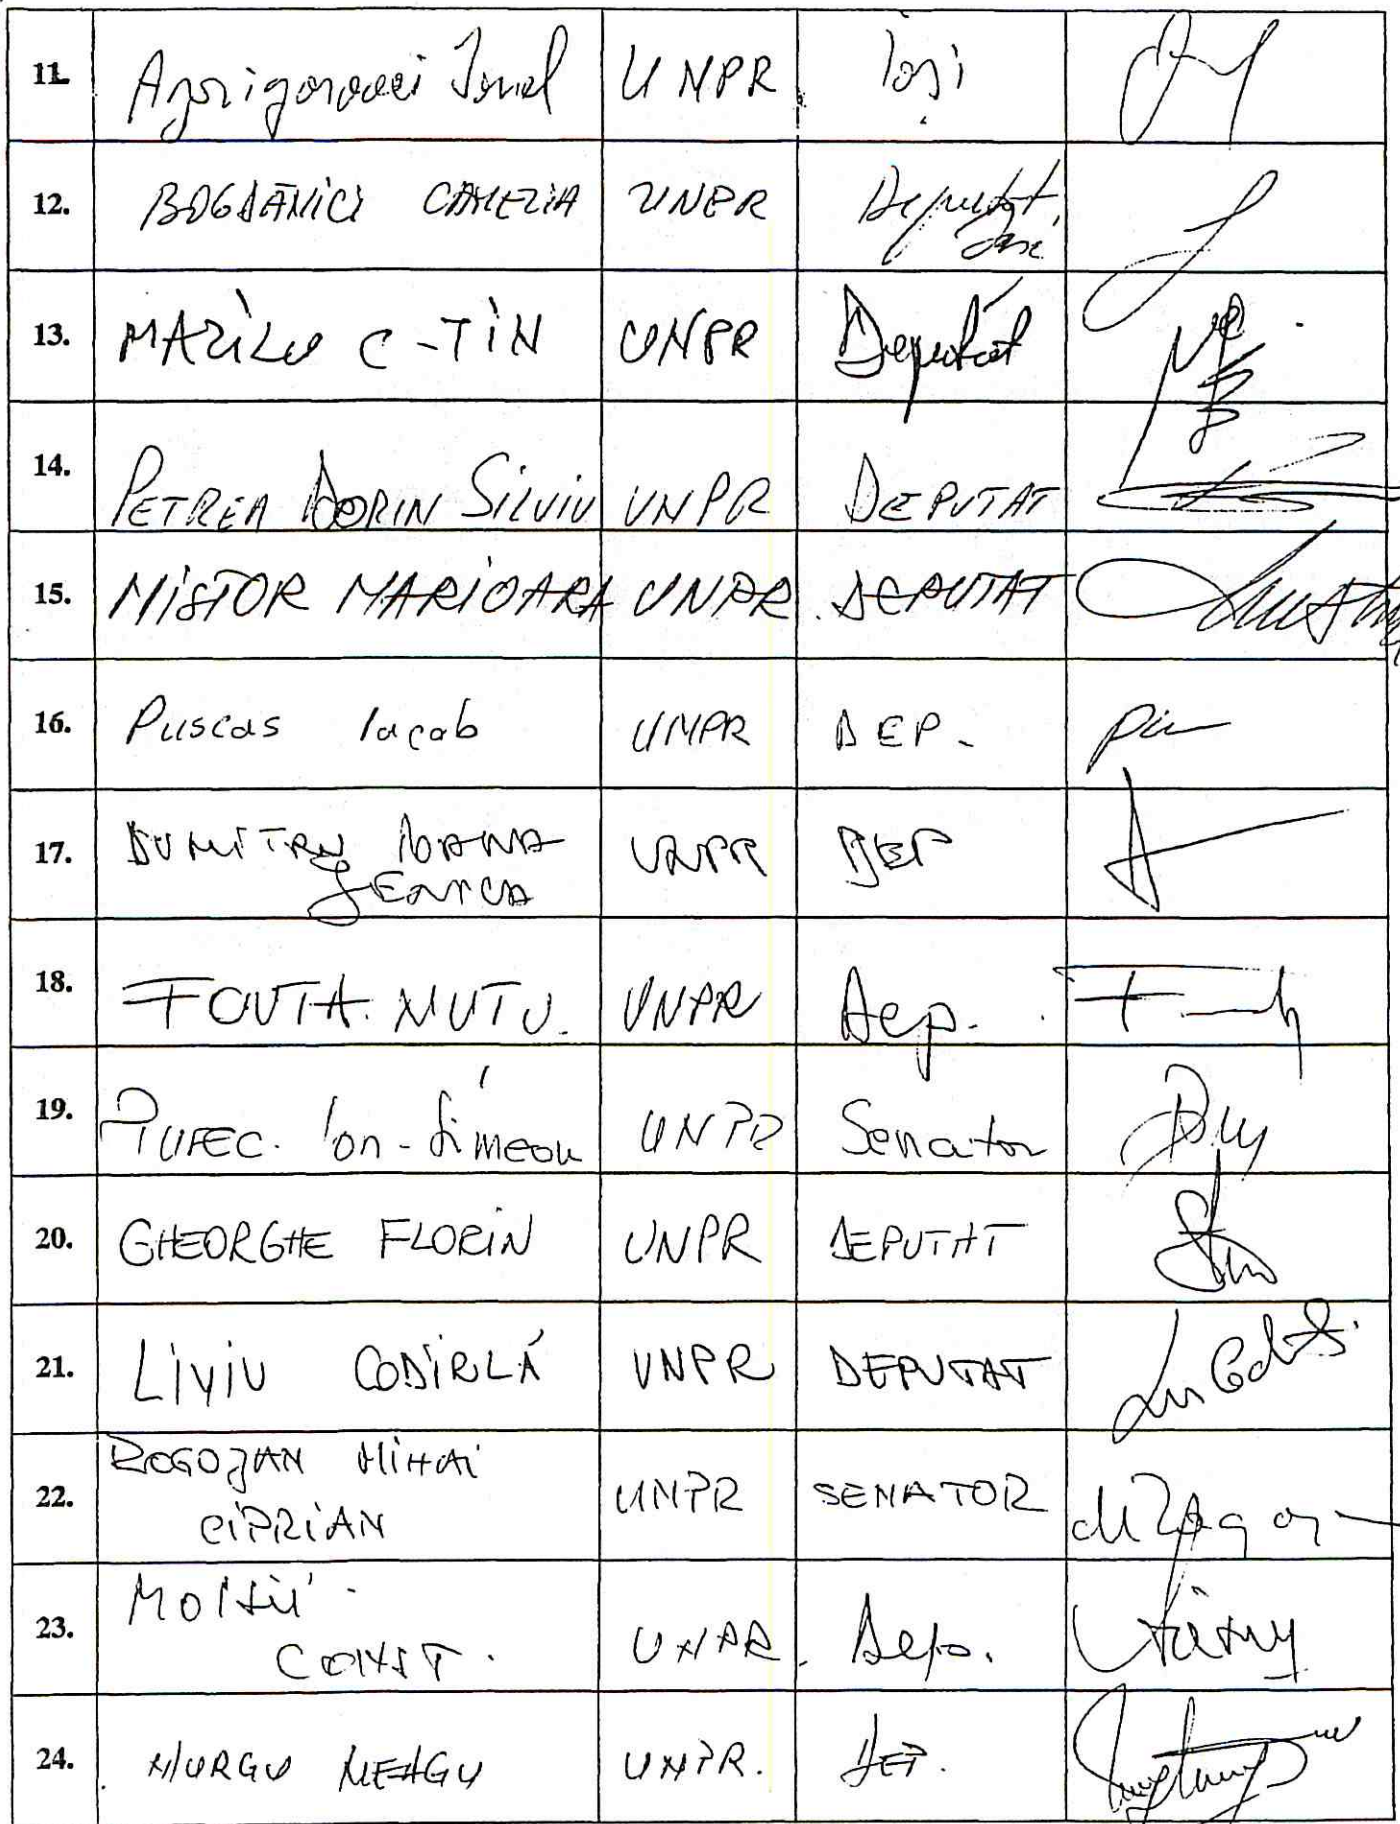 11. Agrigoroaei Ionel UNPR Iași
12. BOGDĂNICI CAMELIA UNPR Deputat Iasi
13. MAZILU C-TIN UNPR Deputat
14. PETREA DORIN SILVIU UNPR DEPUTAT
15. NISTOR MARIOARA UNPR DEPUTAT
16. Puscas Iacob UNPR DEP.
17. DUMITRU IOANA UNPR DEP
JENICA
18. FOVTA NUTU. UNPR Dep.
19. PUFEC. Ion-Simeon UNPR Senator
20. GHEORGHE FLORIN UNPR DEPUTAT
21. LIVIU CODÎRLĂ UNPR DEPUTAT
22. ROGOJAN MIHAI UNPR SENATOR
CIPRIAN
23. MOISII
CONST. UNPR. Dep.
24. NURGU NEAGU UNPR. DEP.